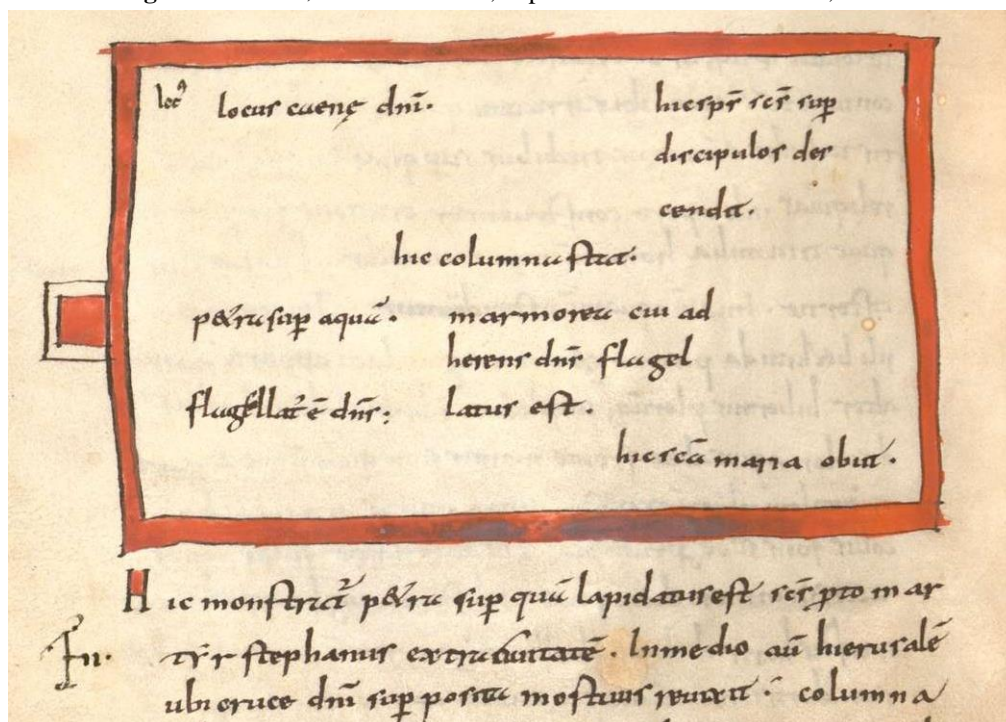 locꝰ locus caenę dn̄i·
hic sp̄s sc̄s sup̲
discipulos des
cendit·
hic columna stat·
p&ra sup̲ aquā· marmorea cui ad
herens dn̄s flagel
flagellat᷑ ē dn̄s; latus est·
hic sc̄a maria obiit·
Hic monstrat᷑ p&ra sup̲ quā lapidatus est sc̄s ꝓto mar
tyr stephanus extra ciuitatē. In medio aū hierusalē
ubi cruce dn̄i sup̲ posita mortuus reuixit: columna